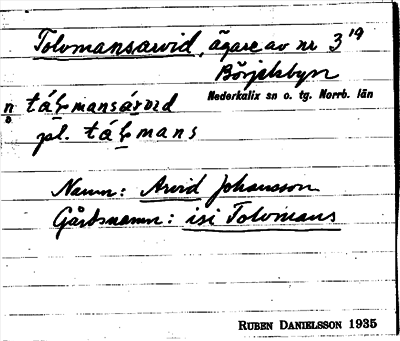 Tolvmansarvid, ägare av nr 3¹⁹
Börjelsbyn
Nederkalix sn o. tg. Norrb. län
n táḷmansárvıd
pl. táḷmans
Namn: Arvid Johansson
Gårdsnamn: isi Tolvmans
RUBEN DANIELSSON 1935